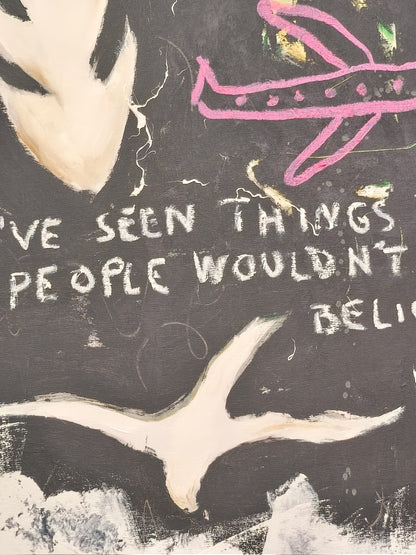 'VE SEEN THINGS
PEOPLE WOULDN'T
BELI